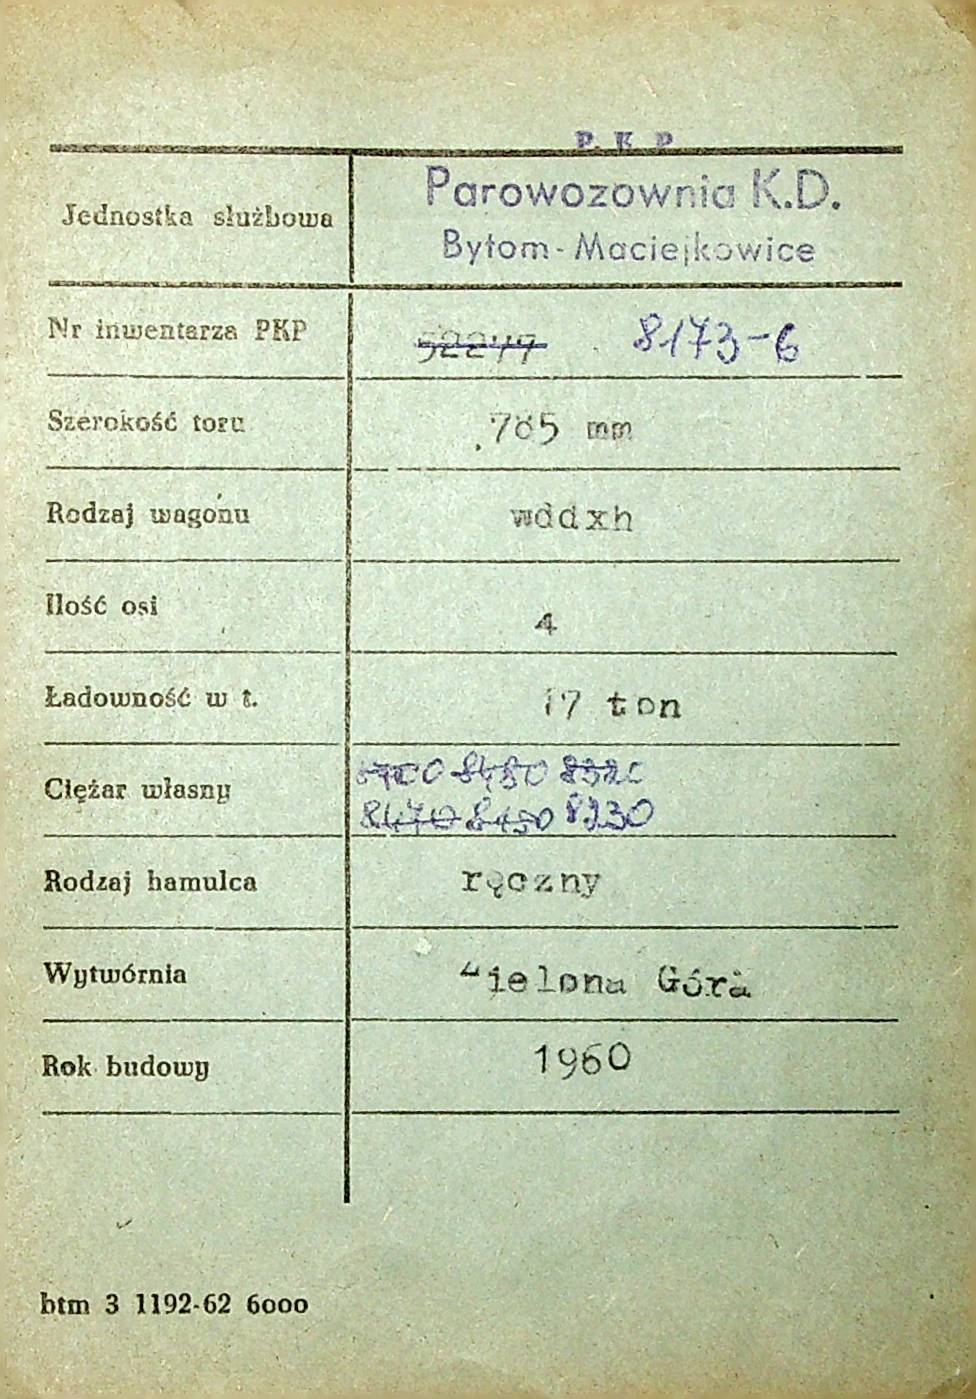 P.K.P.
Parowozownia K.D.
Jednostka służbowa
Bytom-Maciejkowice
Nr inwentarza PKP 8173-6
Szerokość toru 785 mm
Rodzaj wagonu wddxh
Ilość osi 4
Ładowność w t. 17 ton
Ciężar własny
8230
Rodzaj hamulca ręczny
Wytwórnia Zielona Góra
Rok budowy 1960
btm 3 1192-62 6000